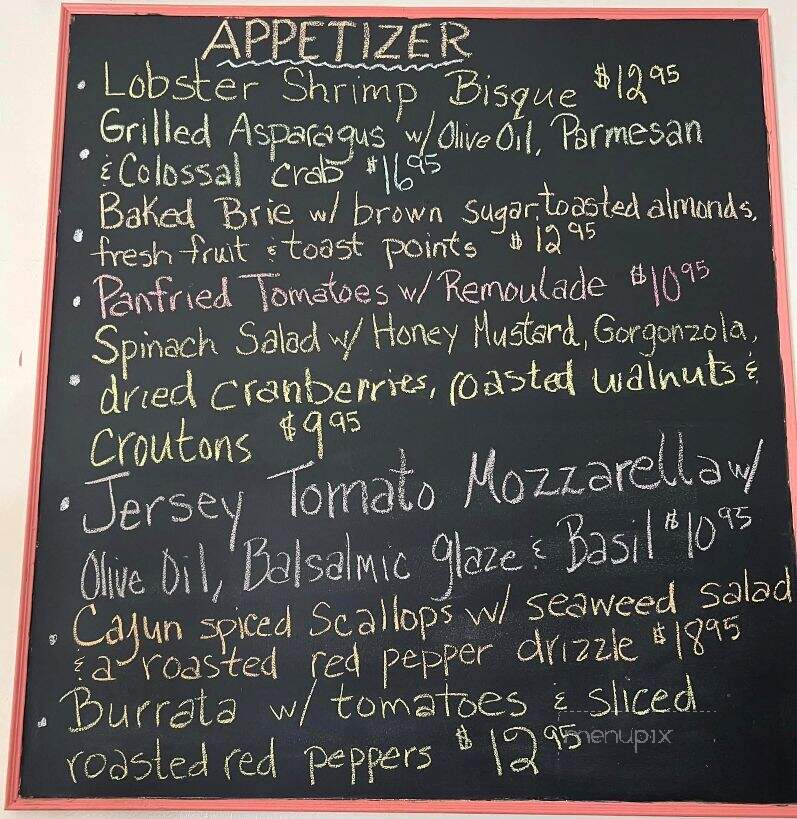 APPETIZER
• Lobster Shrimp Bisque $12.95
Grilled Asparagus w/ Olive Oil, Parmesan
• & Colossal crab $16.95
Baked Brie w/ brown sugar, toasted almonds,
• fresh fruit & toast points $12.95
• Panfried Tomatoes w/ Remoulade $10.95
Spinach Salad w/ Honey Mustard, Gorgonzola,
• dried cranberries, roasted walnuts &
croutons $9.95
• Jersey Tomato Mozzarella w/
Olive Oil, Balsalmic glaze & Basil $10.95
• Cajun spiced Scallops w/ seaweed salad
& a roasted red pepper drizzle $18.95
• Burrata w/ tomatoes & sliced
roasted red peppers $12.95
menupix